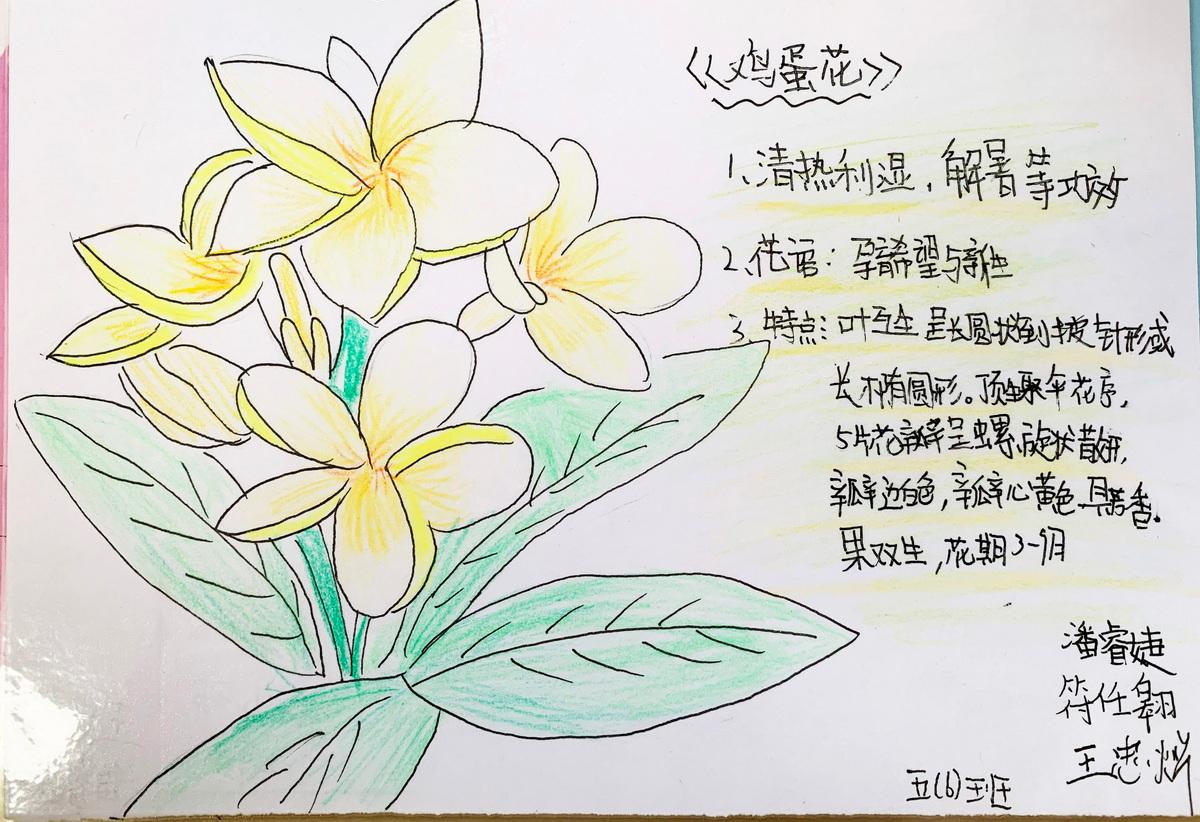 《鸡蛋花》
1、清热利湿，解暑等功效
2、花语：孕育希望与新生
3、特点：叶互生呈长圆状倒披针形或
长椭圆形。顶生聚伞花序，
5片花瓣呈螺旋状散开，
瓣边白色，瓣心黄色.具芳香。
果双生，花期3-9月
潘睿婕
符任翱
王忠
五(6)班